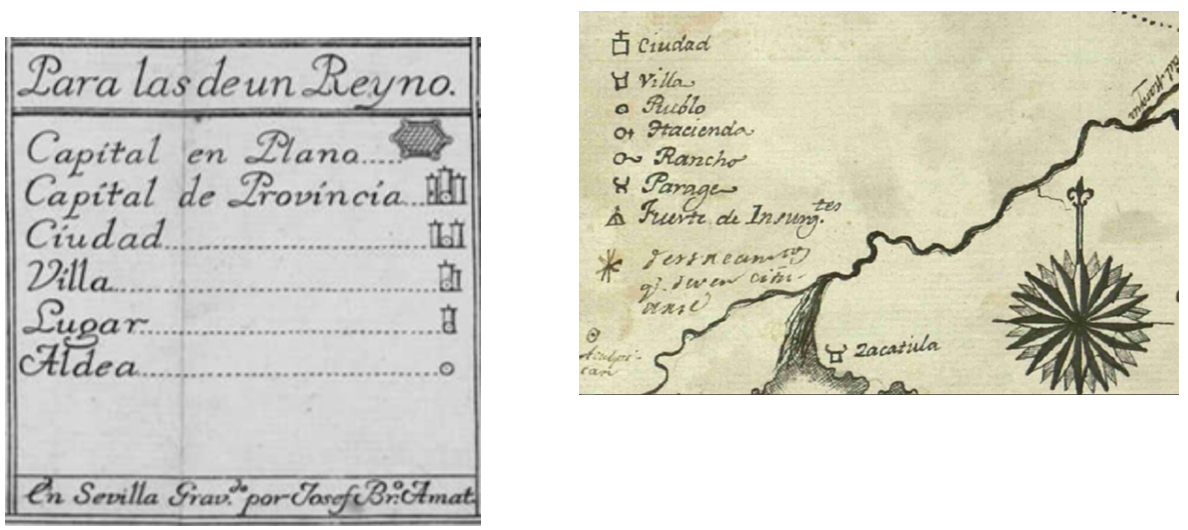 Para las de un Reyno.
Capítal en Plano
Capítal de Províncía
Cíudad
Vílla
Lugar
Aldea
En Sevílla Grav.do por Josef Br.o Amat.
Ciudad
Villa
Pueblo
Hacienda
Rancho
Parage
Fuerte de Insurg.tes
Zacatula